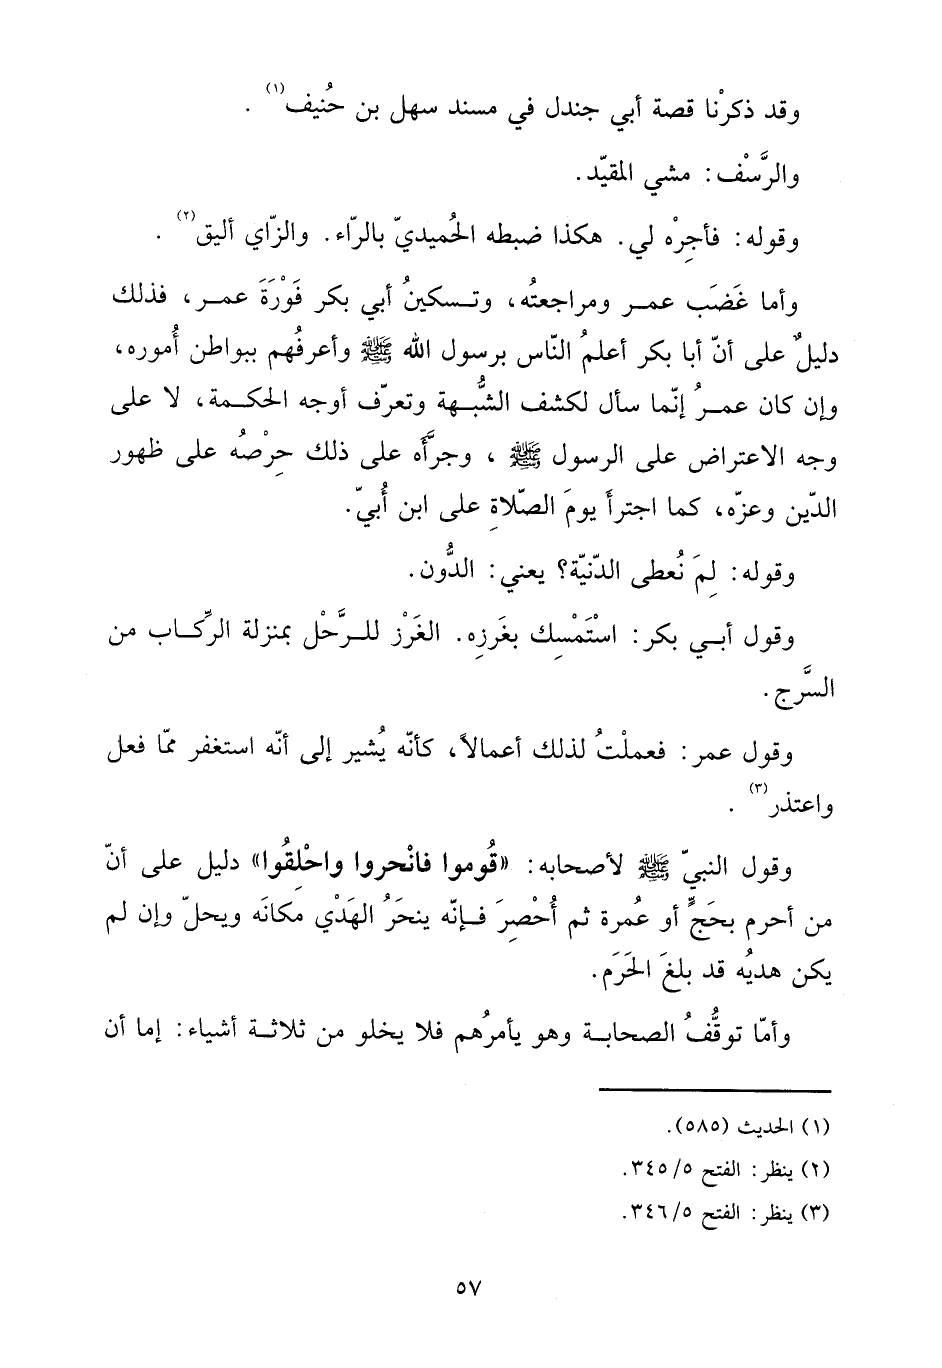 وقد ذكرْنا قصة أبي جندل في مسند سهل بن حُنيف(١) .
والرَّسْف: مشي المقيّد.
وقوله: فأجِرْه لي. هكذا ضبطه الحُميديّ بالرّاء. والزّاي أليق(٢) .
وأما غَضَب عمر ومراجعتُه، وتسكينُ أبي بكر فَوْرَةَ عمر، فذلك
دليلٌ على أنّ أبا بكر أعلمُ النّاس برسول الله ﷺ وأعرفُهم ببواطن أُموره،
وإن كان عمرُ إنّما سأل لكشف الشُّبهة وتعرّف أوجه الحكمة، لا على
وجه الاعتراض على الرسول ﷺ ، وجرَّأه على ذلك حِرْصُه على ظهور
الدّين وعزّه، كما اجترأَ يومَ الصّلاةِ على ابن أُبيّ.
وقوله: لِمَ نُعطى الدّنيّة؟ يعني: الدُّون.
وقول أبي بكر: اسْتَمْسِك بغَرزِه. الغَرْز للرَّحْل بمنزلة الرِّكاب من
السَّرج.
وقول عمر: فعملْتُ لذلك أعمالاً، كأنّه يُشير إلى أنّه استغفر ممّا فعل
واعتذر(٣) .
وقول النبيّ ﷺ لأصحابه: «قُوموا فانْحروا واحْلِقُوا» دليل على أنّ
من أحرم بحَجٍّ أو عُمرة ثم أُحْصِرَ فإنّه ينحَرُ الهَدْي مكانَه ويحلّ وإن لم
يكن هديُه قد بلغَ الحَرَم.
وأمّا توقُّفُ الصحابة وهو يأمرُهم فلا يخلو من ثلاثة أشياء: إما أن
(١) الحديث (٥٨٥).
(٢) ينظر: الفتح ٣٤٥/٥.
(٣) ينظر: الفتح ٣٤٦/٥.
٥٧